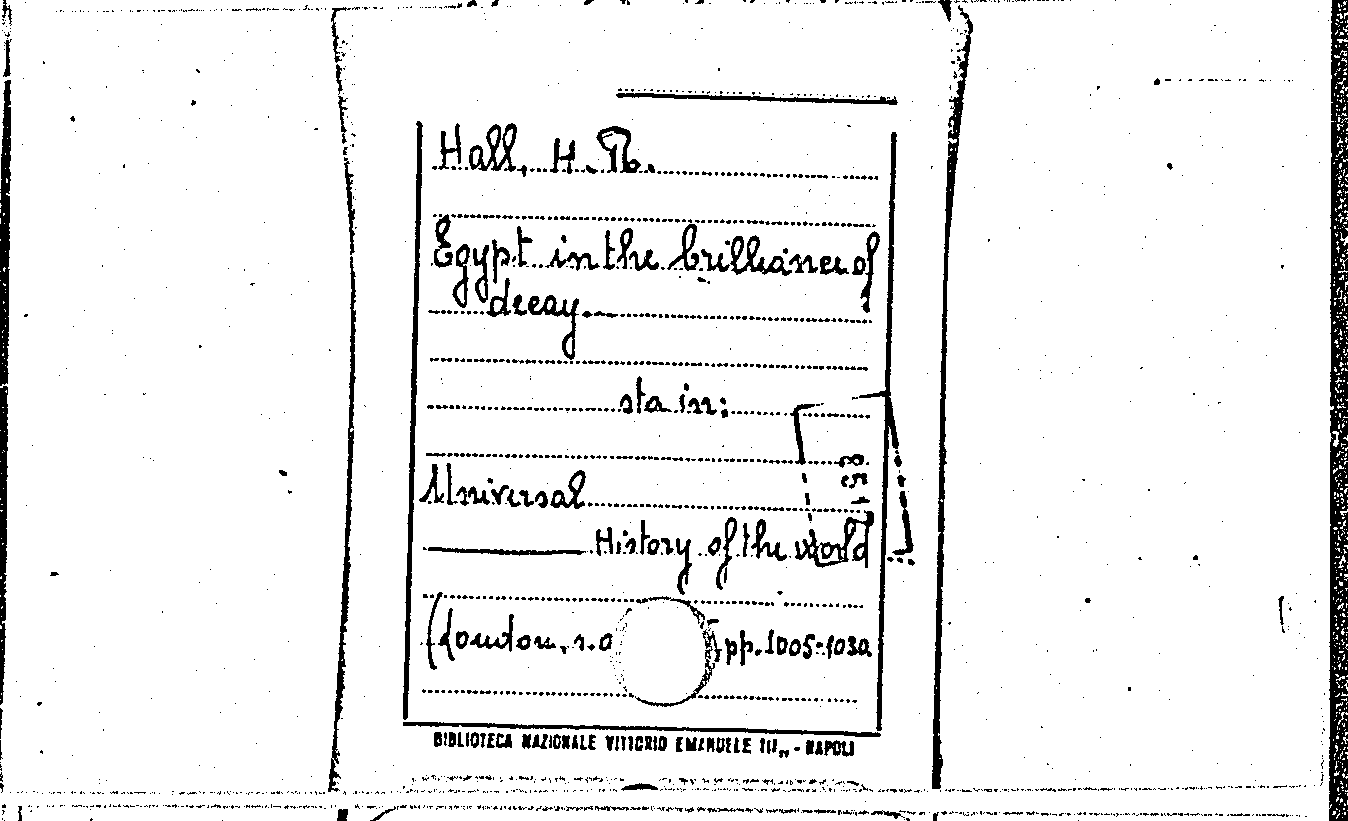 Hall, H. R.
Egypt in the brilliance of
decay...
sta in:
Universal
History of the world
(London, s.a ), pp. 1005-1030
BIBLIOTECA NAZIONALE VITTORIO EMANUELE III,, - NAPOLI